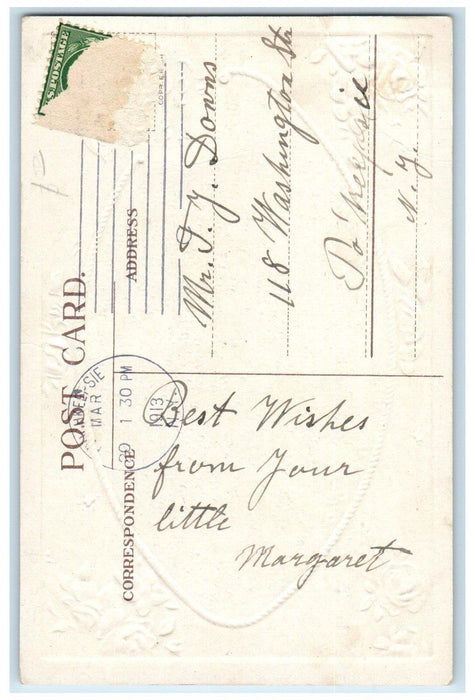 S. POSTAGE
POST CARD.
ADDRESS
CORRESPONDENCE
MAR
20
1 30 PM
1913
Mr. T. J. Downs
118 Washington Str
Po'keepsie
N. Y.
Best Wishes
from Your
little
Margaret